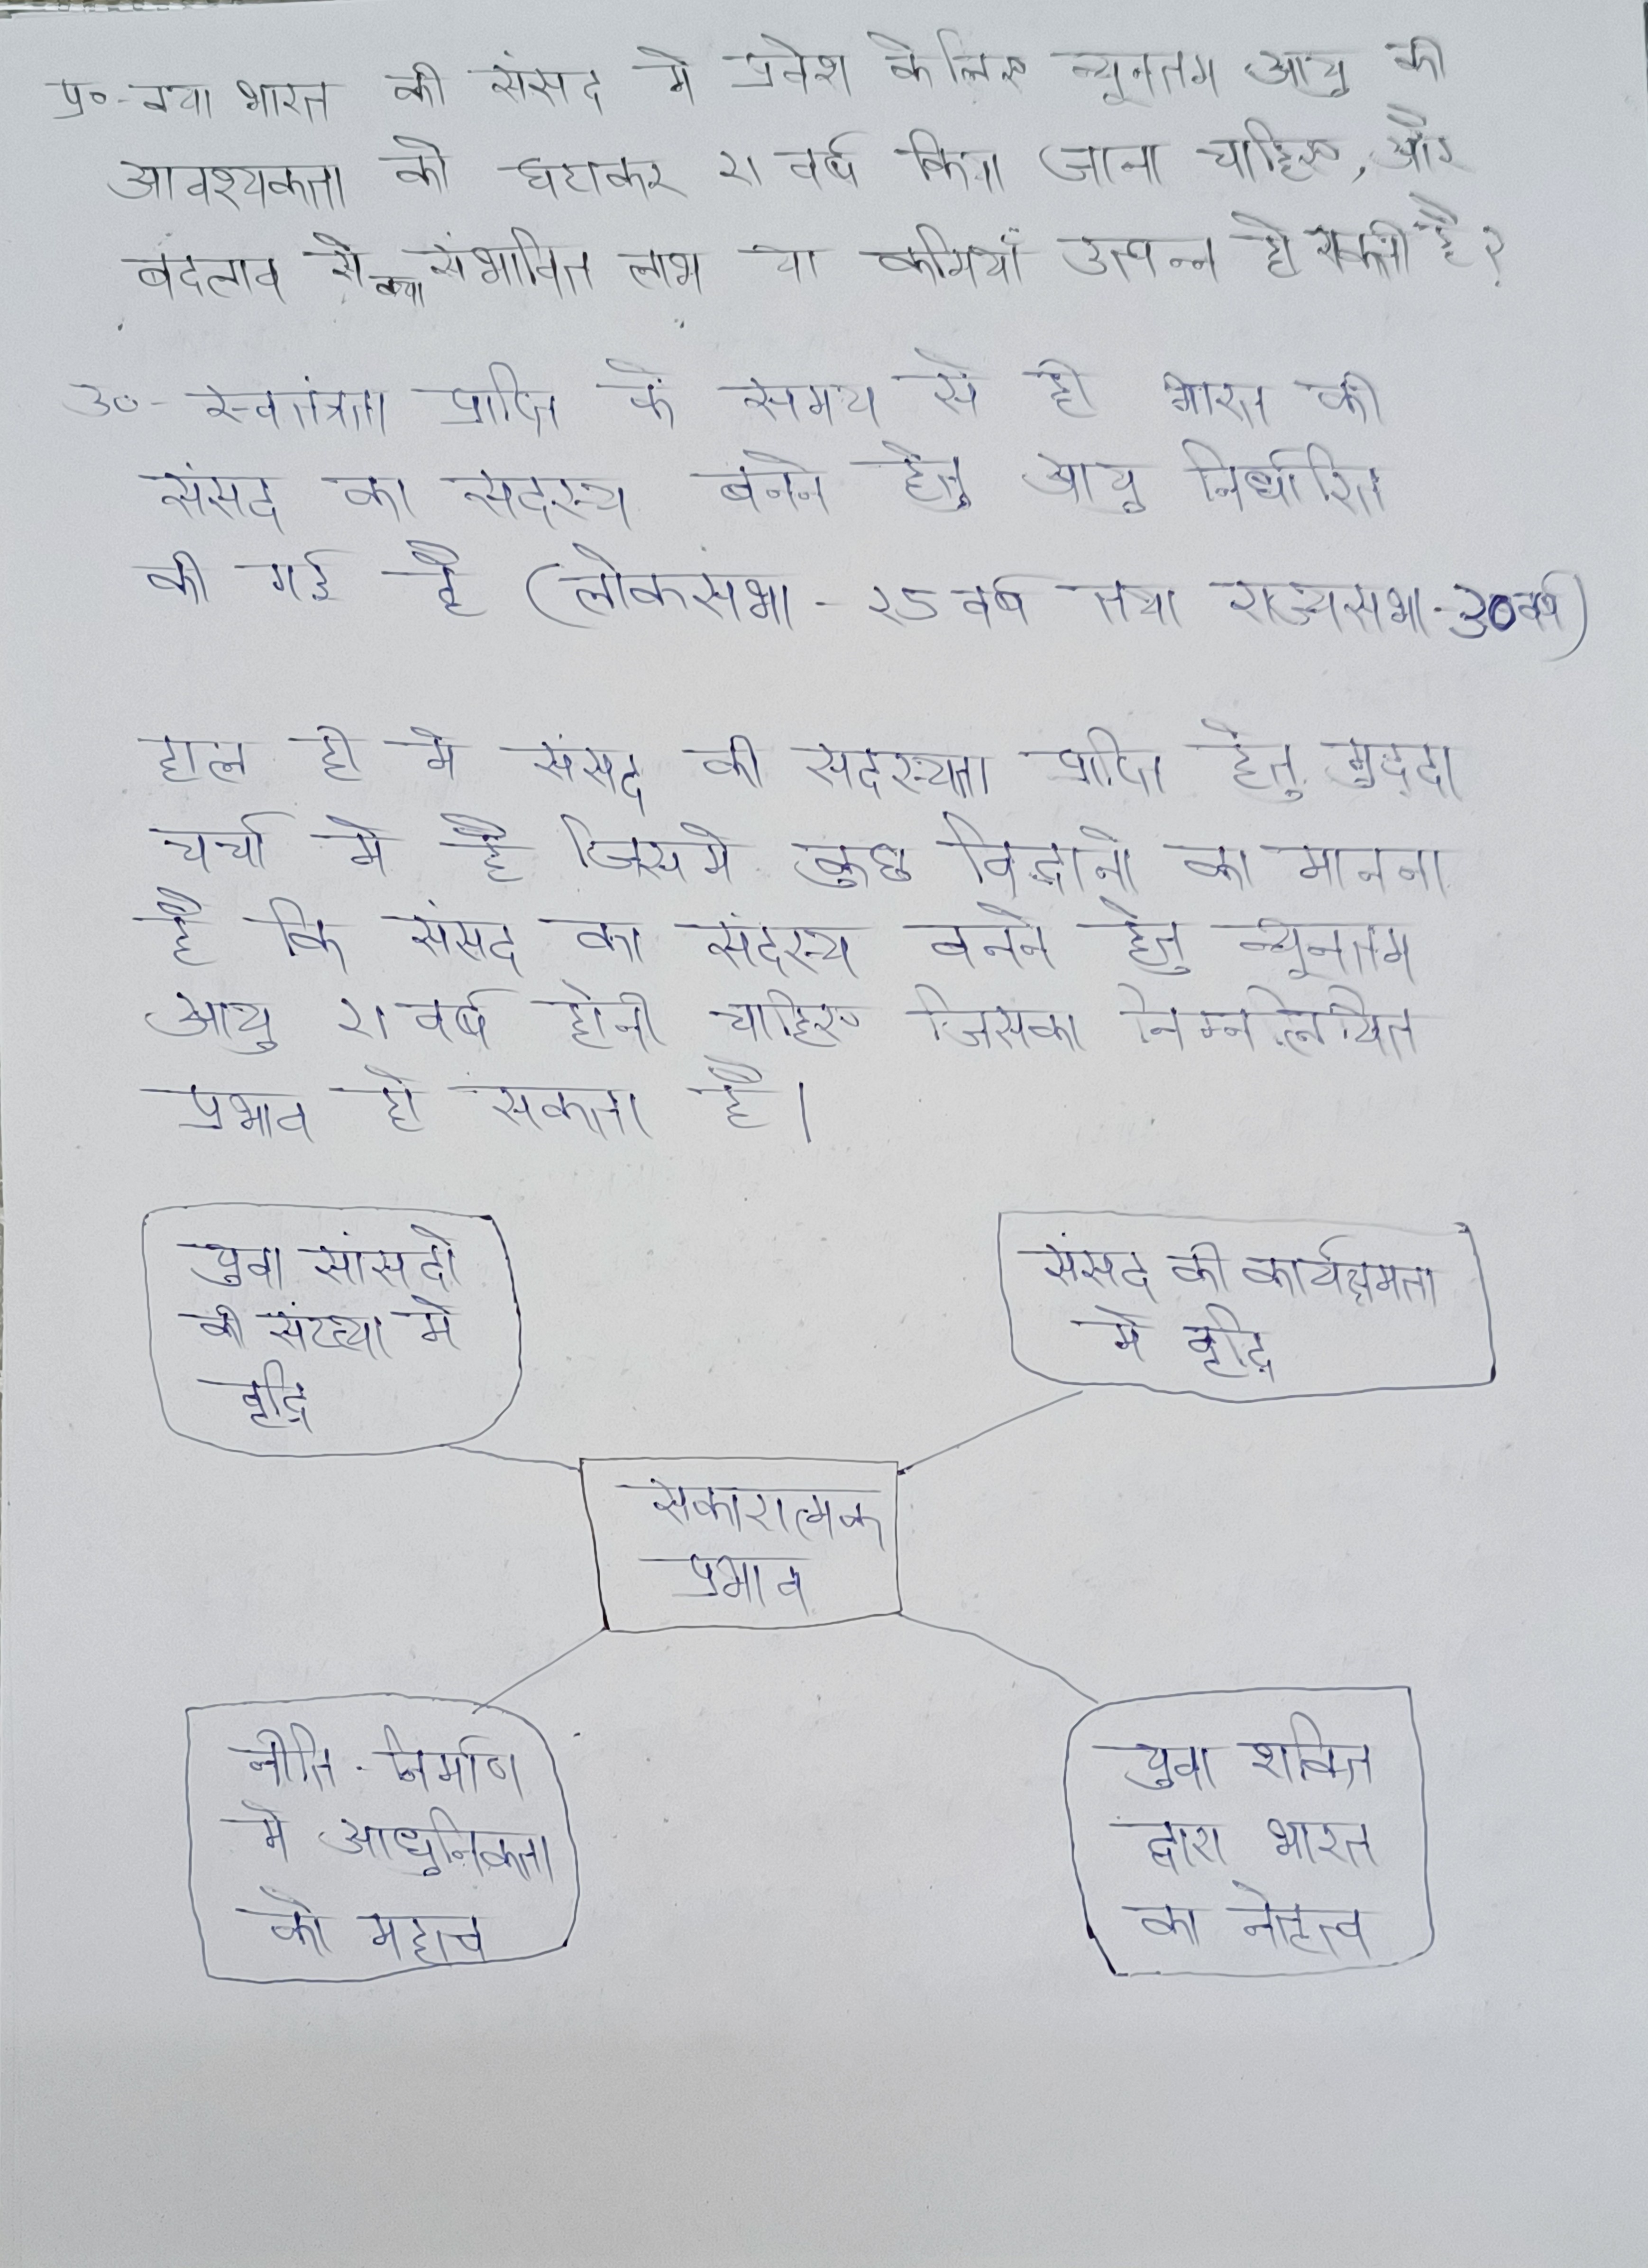 प्र०- क्या भारत की संसद मे प्रवेश के लिए न्यूनतम आयु की
आवश्यकता को घटाकर २१ वर्ष किया जाना चाहिए, और
बदलाव से क्या संभावित लाभ या कमियाँ उत्पन्न हो सकती है?
उ०- स्वतंत्रता प्राप्ति के समय से ही भारत की
संसद का सदस्य बनने हेतु आयु निर्धारित
की गई है (लोकसभा - २५ वर्ष तथा राज्यसभा - ३० वर्ष)
हाल ही मे संसद की सदस्यता प्राप्ति हेतु मुद्दा
चर्चा मे है जिसमे कुछ विद्वानो का मानना
है कि संसद का सदस्य बनने हेतु न्यूनतम
आयु २१ वर्ष होनी चाहिए जिसका निम्नलिखित
प्रभाव हो सकता है।
युवा सांसदो
की संख्या मे
वृद्धि
संसद की कार्यक्षमता
मे वृद्धि
सकारात्मक
प्रभाव
नीति - निर्माण
मे आधुनिकता
को महत्व
युवा शक्ति
द्वारा भारत
का नेतृत्व